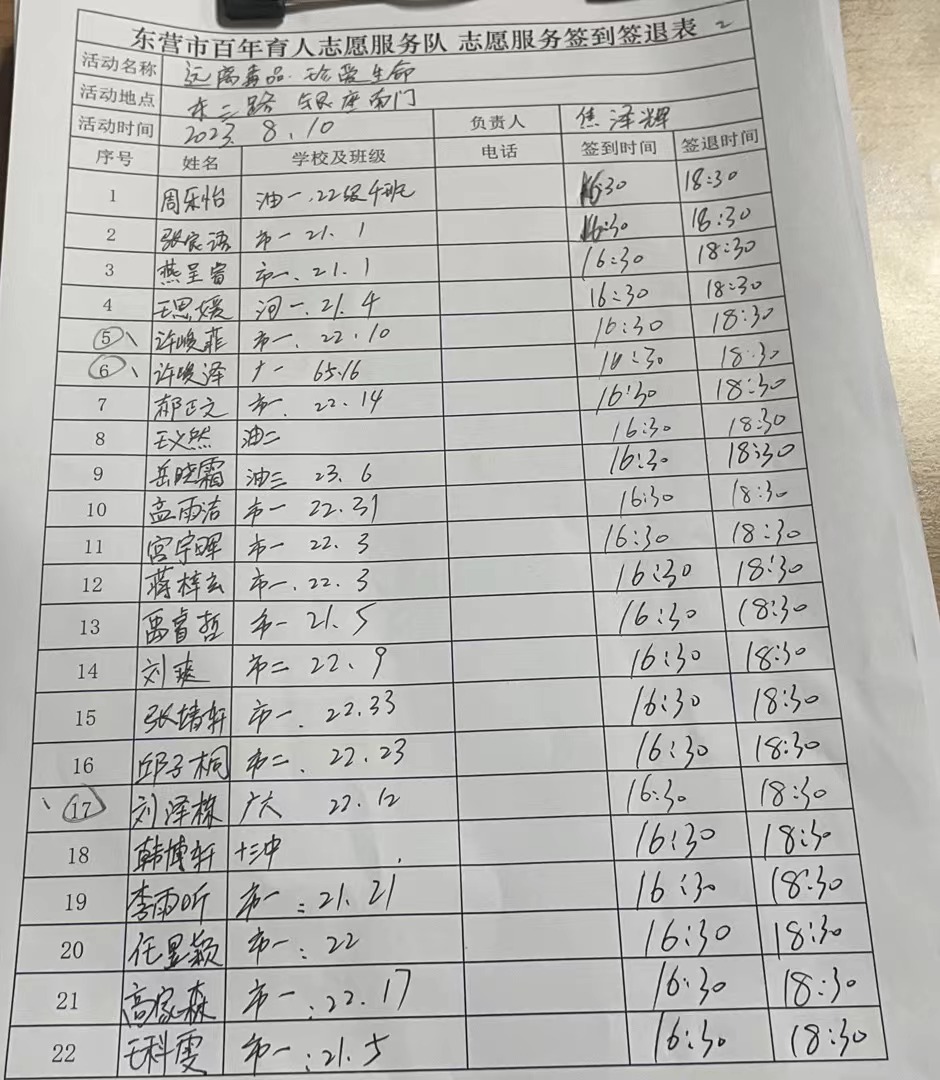 东营市百年育人志愿服务队 志愿服务签到签退表 2
活动名称 远离毒品·珍爱生命
活动地点 东三路 银座南门
活动时间 2023. 8. 10 负责人 焦泽辉
序号 姓名 学校及班级 电话 签到时间 签退时间
1 周乐怡 油一.22级4班 16:30 18:30
2 张宸语 市一 21. 1 16:30 18:30
3 燕呈睿 市一. 21. 1 16:30 18:30
4 王思媛 河一. 21. 4 16:30 18:30
5 许峻菲 市一. 22. 10 16:30 18:30
6 许峻泽 广一 65.16 16:30 18:30
7 郝正文 市一. 22. 14 16:30 18:30
8 王义然 油二 16:30 18:30
9 岳晓霜 油三 23. 6 16:30 18:30
10 孟雨洁 市一 22.31 16:30 18:30
11 宫宇晖 市一 22. 3 16:30 18:30
12 蒋梓玄 市一. 22. 3 16:30 18:30
13 禹睿哲 市一 21. 5 16:30 18:30
14 刘爽 市二 22. 9 16:30 18:30
15 张婧轩 市一. 22.33 16:30 18:30
16 邱子桐 市二. 22.23 16:30 18:30
17 刘泽栋 广六 22.12 16:30 18:30
18 韩博轩 十三中 16:30 18:30
19 李雨昕 市一 : 21.21 16:30 18:30
20 任昱颖 市一 : 22 16:30 18:30
21 高家森 市一 : 22.17 16:30 18:30
22 王科雯 市一 : 21.5 16:30 18:30